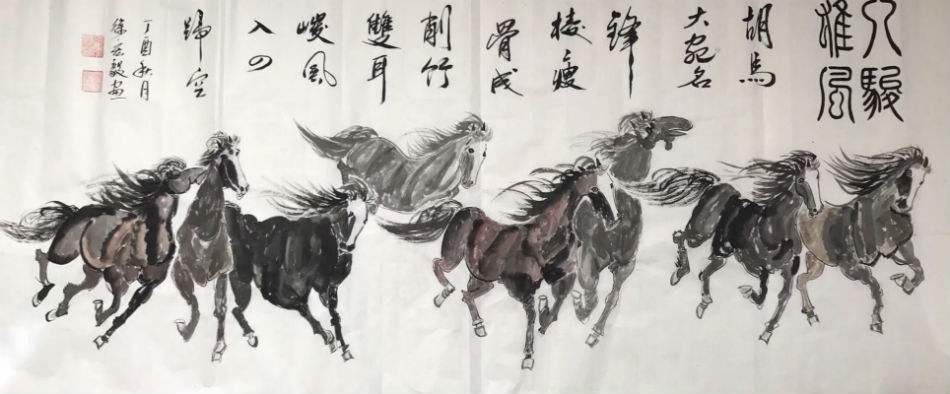 八駿
雄風
胡馬
大宛名
鋒
棱瘦
骨成
削竹
雙耳
峻風
入四
蹄空
丁酉秋月
徐 毅畫